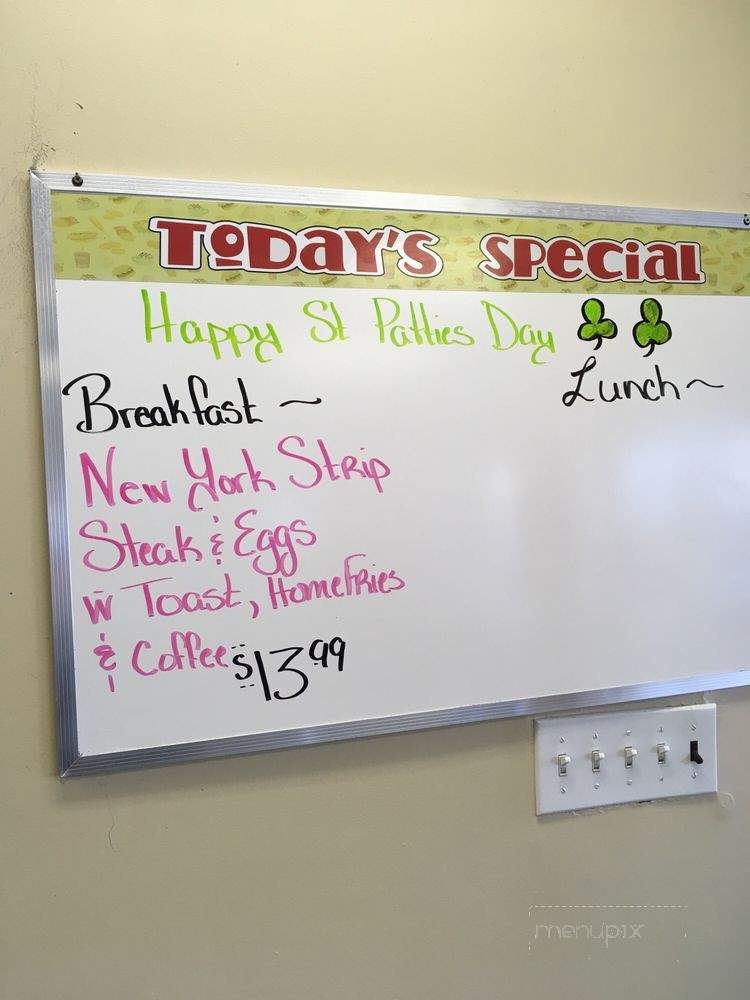 Today's Special
Happy St Patties Day
Breakfast ~
Lunch ~
New York Strip
Steak & Eggs
w Toast, Homefries
& Coffee $13.99
menupix